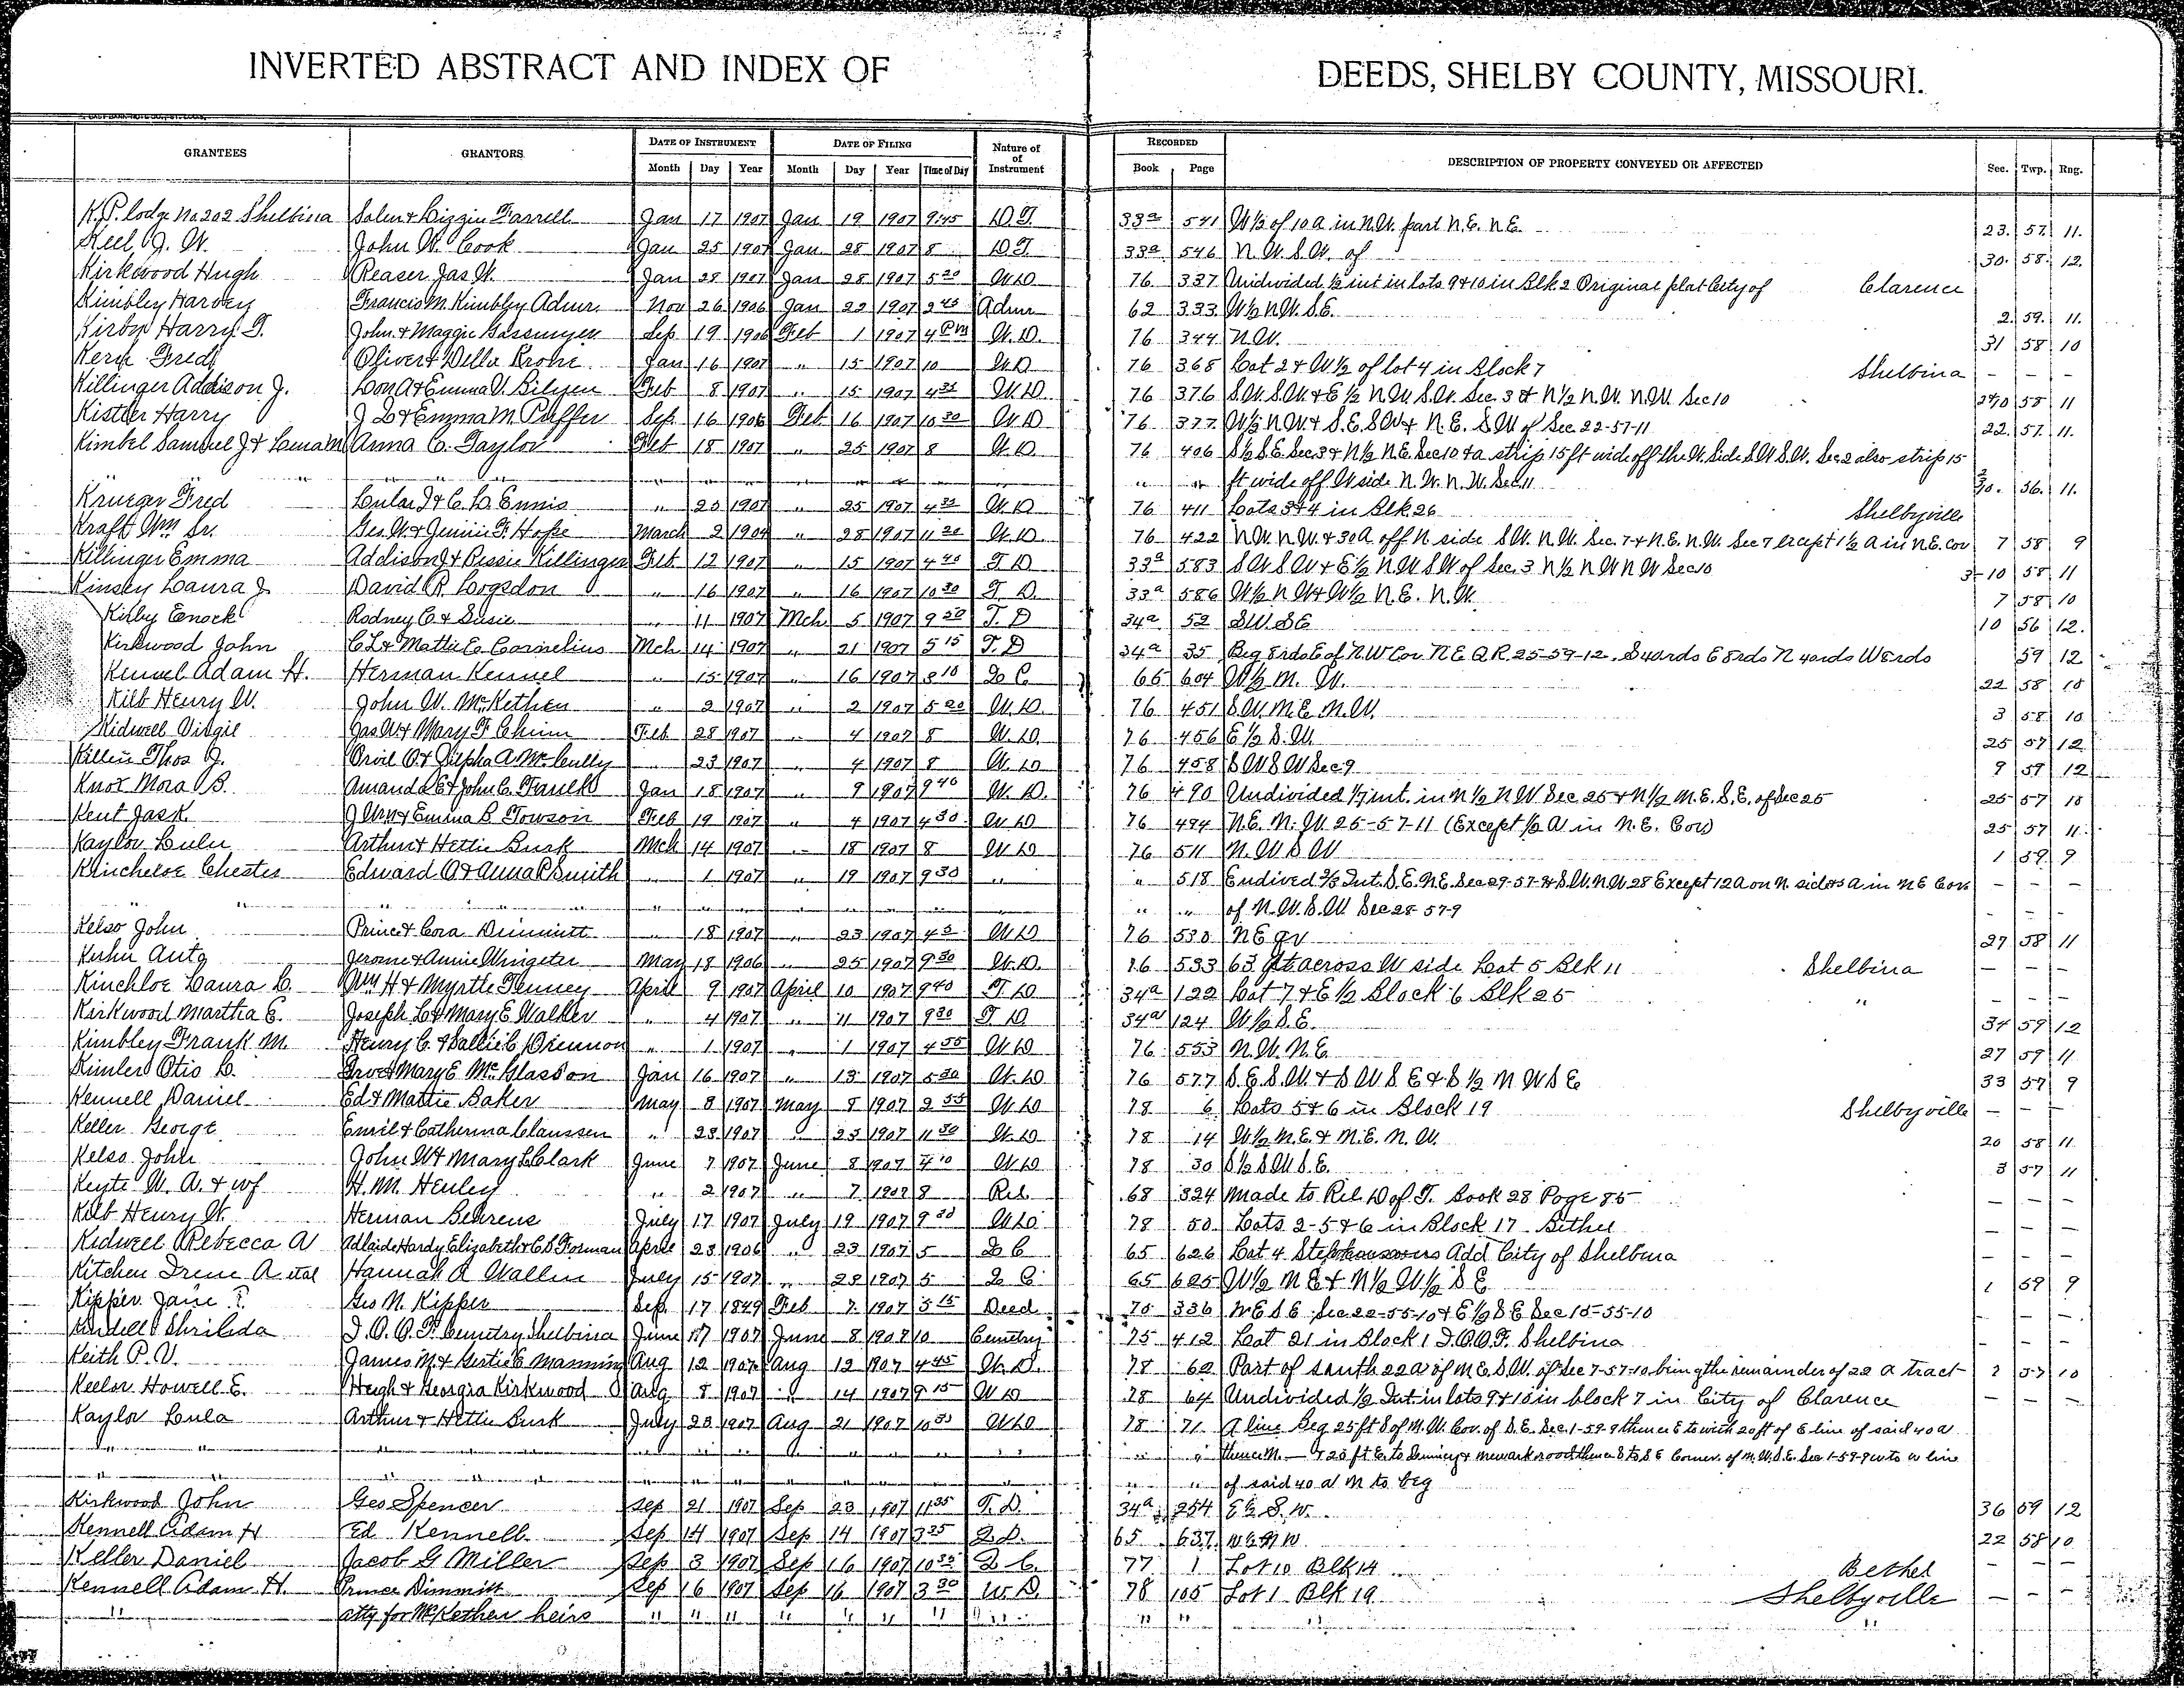 INVERTED ABSTRACT AND INDEX OF DEEDS, SHELBY COUNTY, MISSOURI.
GRANTEES GRANTORS DATE OF INSTRUMENT DATE OF FILING Nature of Instrument RECORDED DESCRIPTION OF PROPERTY CONVEYED OR AFFECTED Sec. Twp. Rng.
Month Day Year Month Day Year Time of Day Book Page
K.P. lodge No 202 Shelbina Jan 17 1907 Jan 19 1907 9:45 D.T. 33a 541 W ½ of 10 a in N.W. part N.E. N.E. 23. 57. 11.
Keel J. W. John W. Cook Jan 25 1907 Jan 28 1907 8 D.T. 33a 546 N.W. S.W. of 30. 58. 12.
Kirkwood Hugh Reaser Jas W. Jan 28 1907 Jan 28 1907 5 20 W.D 76 337 Undivided ½ int in lots 9 & 10 in Blk 2 Original plat City of Clarence
Kimbley Harvey Francis M. Kimbley Admr. Nov 26 1906 Jan 22 1907 Admr 62 333 W ½ N.W. S.E. 2. 59. 11.
Kirby Harry T. John & Maggie Gassmyer Sep 19 1906 Feb 1 1907 4 PM W.D. 76 344 N.W. 31 58 10
Fred Oliver & Della Krohe Jan 16 1907 " 15 1907 10 W.D 76 368 Lot 2 & W ½ of lot 4 in Block 7 Shelbina — — —
Killinger Addison J. Feb 8 1907 " 15 1907 W.D. 76 376 S.W. S.W. & E ½ N.W. S.W. Sec. 3 & N ½ N.W. N.W. Sec 10 58 11
Kistler Harry J D & Emma M. Puffer Sep. 16 1906 Feb 16 1907 10 30 W.D 76 377 W ½ N.W. & S.E. S.W. & N.E. S.W of Sec. 22-57-11 22. 57. 11.
Kimbel Samuel J & Anna C. Taylor Feb 18 1907 " 25 1907 8 W.D 76 406 S ½ S.E. Sec 3 & N ½ N.E. Sec 10 & a strip 15 ft wide off the W. Side S.W S.W. Sec 2 also strip 15
" " " ft wide off W side N.W. N.W. Sec 11 56. 11.
Krueger Fred Lular J & C. L. Ennis " 23 1907 " 25 1907 W.D 76 411 Lots 3 & 4 in Blk 26 Shelbyville
Kraft Wm Sr. Geo. W. & Jennie F. Hope March 2 1904 " 28 1907 11 20 W.D. 76 422 N.W. N.W. & 30 A. off N side S.W. N.W. Sec. 7 & N.E. N.W. Sec 7 except 1½ a in N.E. cor 7 58 9
Killinger Emma Addison J & Bessie Killinger Feb 12 1907 " 15 1907 4 40 T.D 33a 583 S W S W & E ½ N W S W of Sec. 3 N ½ N W N W Sec 10 3-10 58 11
Kinsey Laura J. David R. Logsdon " 16 1907 " 16 1907 10 30 T.D. 33a 586 W ½ N W & W ½ N.E. N.W. 7 58 10
Kirby Enock Rodney C. & Susie " 11 1907 Mch 5 1907 9 20 T.D 34a 52 S.W. S E 10 56 12.
Kirkwood John C L & Mattie E. Cornelius Mch 14 1907 " 21 1907 5 15 T.D 34a 35 Beg 8 rds E of N.W Cor N E Q R. 25-59-12. S 4 ords E 8 rds N 4 ords W 8 rds 59 12
Kennel Adam H. Herman Kennel " 15 1907 " 16 1907 Q C 65 604 W ½ N.W. 22 58 10
Kilb Henry W. John W. McKethen " 2 1907 " 2 1907 5 20 W.D. 76 451 S.W. N.E. N.W. 3 58 10
Kidwell Virgil Jas W & Mary F. Chinn Feb 28 1907 " 4 1907 8 W.D. 76 456 E ½ S.W. 25 57 12
Killin Thos J. Orvil O. & Zilpha A. McCully " 23 1907 " 4 1907 8 W.D 76 458 S W S W Sec 9 9 59 12
Knox Mora B. Amanda E & John C. Faulk Jan 18 1907 " 9 1907 9 40 W.D. 76 490 Undivided 1/7 int. in N ½ N W Sec 25 & N ½ N.E. S.E. of Sec 25 25 57 10
Kent Jas K. & Emma B Towson Feb 19 1907 " 4 1907 4 30 W D 76 494 N.E. N.W. 25-57-11 (Except ½ A in N.E. Cor) 25 57 11.
Kaylor Lulu Arthur & Hettie Busk Mch 14 1907 " 18 1907 8 W D 76 511 N.W S W 1 59 9
Klincheloe Chester Edward O & Anna P Smith " 1 1907 " 19 1907 9 30 " " 518 Endived ⅔ Int. S.E. N.E. Sec 29-57-9 & S.W. N.W 28 Except 12 A on N. side & 5 A in NE Cor — — —
" " " of N.W. S.W. Sec 28 57-9 — — —
Kelso John Prince & Cora Dimmitt " 18 1907 " 23 1907 W D 76 530 N E qr 27 58 11
Kuhn Autg Jerome & Annie Wingeter May 18 1906 " 25 1907 9 30 W.D. 76 533 63 ft across W side Lot 5 Blk 11 Shelbina — — —
Kinchloe Laura C. Wm H & Myrtle Tenney April 9 1907 April 10 1907 9 40 T. D 34a 122 Lot 7 & E ½ Block 6 Blk 25 " — — —
Kirkwood Martha E. Joseph L & Mary E. Walker " 4 1907 " 11 1907 9 30 T D 34a 124 W ½ S.E. 34 59 12
Kimbley Frank M. Henry C. & Sallie C. Drennon " 1 1907 " 1 1907 4 35 W D 76 553 N.W. N.E. 27 59 11
Kimler Otis L. & Mary E McGlasson Jan 16 1907 " 13 1907 5 30 W.D 76 577 S.E. S.W. & S W S E & S ½ N W S E 33 57 9
Kennell Daniel Ed & Mattie Baker May 8 1907 May 8 1907 W.D 78 6 Lots 5 & 6 in Block 19 Shelbyville — — —
Keller George Emil & Catherina Claussen " 23 1907 " 23 1907 11 30 W.D 78 14 W ½ N.E. & N.E. N.W. 20 58 11
Kelso John John W & Mary L Clark June 7 1907 June 8 1907 W D 78 30 S ½ S.W S.E. 3 57 11
Keyte W. A. & wf H. M. Henley " 2 1907 " 7 1907 8 Rel. 68 324 Made to Rel. D of T. Book 28 Page 85 — — —
Kilb Henry W. Herman Behrens July 17 1907 July 19 1907 9 30 W D 78 50 Lots 2-5 & 6 in Block 17 Bethel — — —
Kidwell Rebecca A Adlaide Hardy Elizabeth & C B Forman April 23 1906 " 23 1907 5 Q C 65 626 Lot 4 Add City of Shelbina — — —
Kitchen Irene A. etal Hannah A Wallin July 15 1907 " 29 1907 5 Q C 65 625 W ½ N E & N ½ W ½ S E 1 59 9
Kipper Jane T. Geo N. Kipper Sep. 17 1849 Feb 7 1907 Deed 70 336 N E S E Sec 22-55-10 & E ½ S E Sec 15-55-10 — — —
Kindell Shrilda I.O.O.F. Cemetry Shelbina June 17 1907 June 8 1907 10 Cemetry 75 412 Lot 21 in Block 1 I.O.O.F. Shelbina — — —
Keith P. V. James M & Gertie E Manning Aug 12 1907 Aug 12 1907 4 45 W.D. 78 62 Part of south 22 a of N E S.W. of Sec 7-57-10 being the remainder of 22 a tract 7 57 10
Keelor Howell E. Hugh & Georgia Kirkwood Aug 8 1907 " 14 1907 9 15 W D 78 64 Undivided ½ Int. in lots 9 & 10 in block 7 in City of Clarence — — —
Kaylor Lula Arthur & Hettie Busk July 23 1907 Aug 21 1907 W D 78 71 A line Beg 25 ft S of N.W. Cor. of S.E. Sec. 1-59-9 thence E to with 20 ft of E line of said 40 a
" " " thence N — & 20 ft E. to & Newark road thence S to S E Corner. of N.W. S.E. Sec 1-59-9 W to W line
" " " of said 40 a N to beg
Kirkwood John Geo Spencer Sep 21 1907 Sep 23 1907 11 35 T.D. 34a 254 E ½ S.W. 36 59 12
Kennell Adam H Ed Kennell Sep 14 1907 Sep 14 1907 3 25 65 637 22 58 10
Keller Daniel Jacob G Miller Sep 3 1907 Sep 16 1907 Q C. 77 1 Lot 10 Blk 14 Bethel — —
Kennell Adam H. Prince Dimmitt Sep 16 1907 Sep 16 1907 3 30 W.D. 78 105 Lot 1 Blk 19 Shelbyville — — —
" atty for McKethen heirs " " " " " " " " " " " "